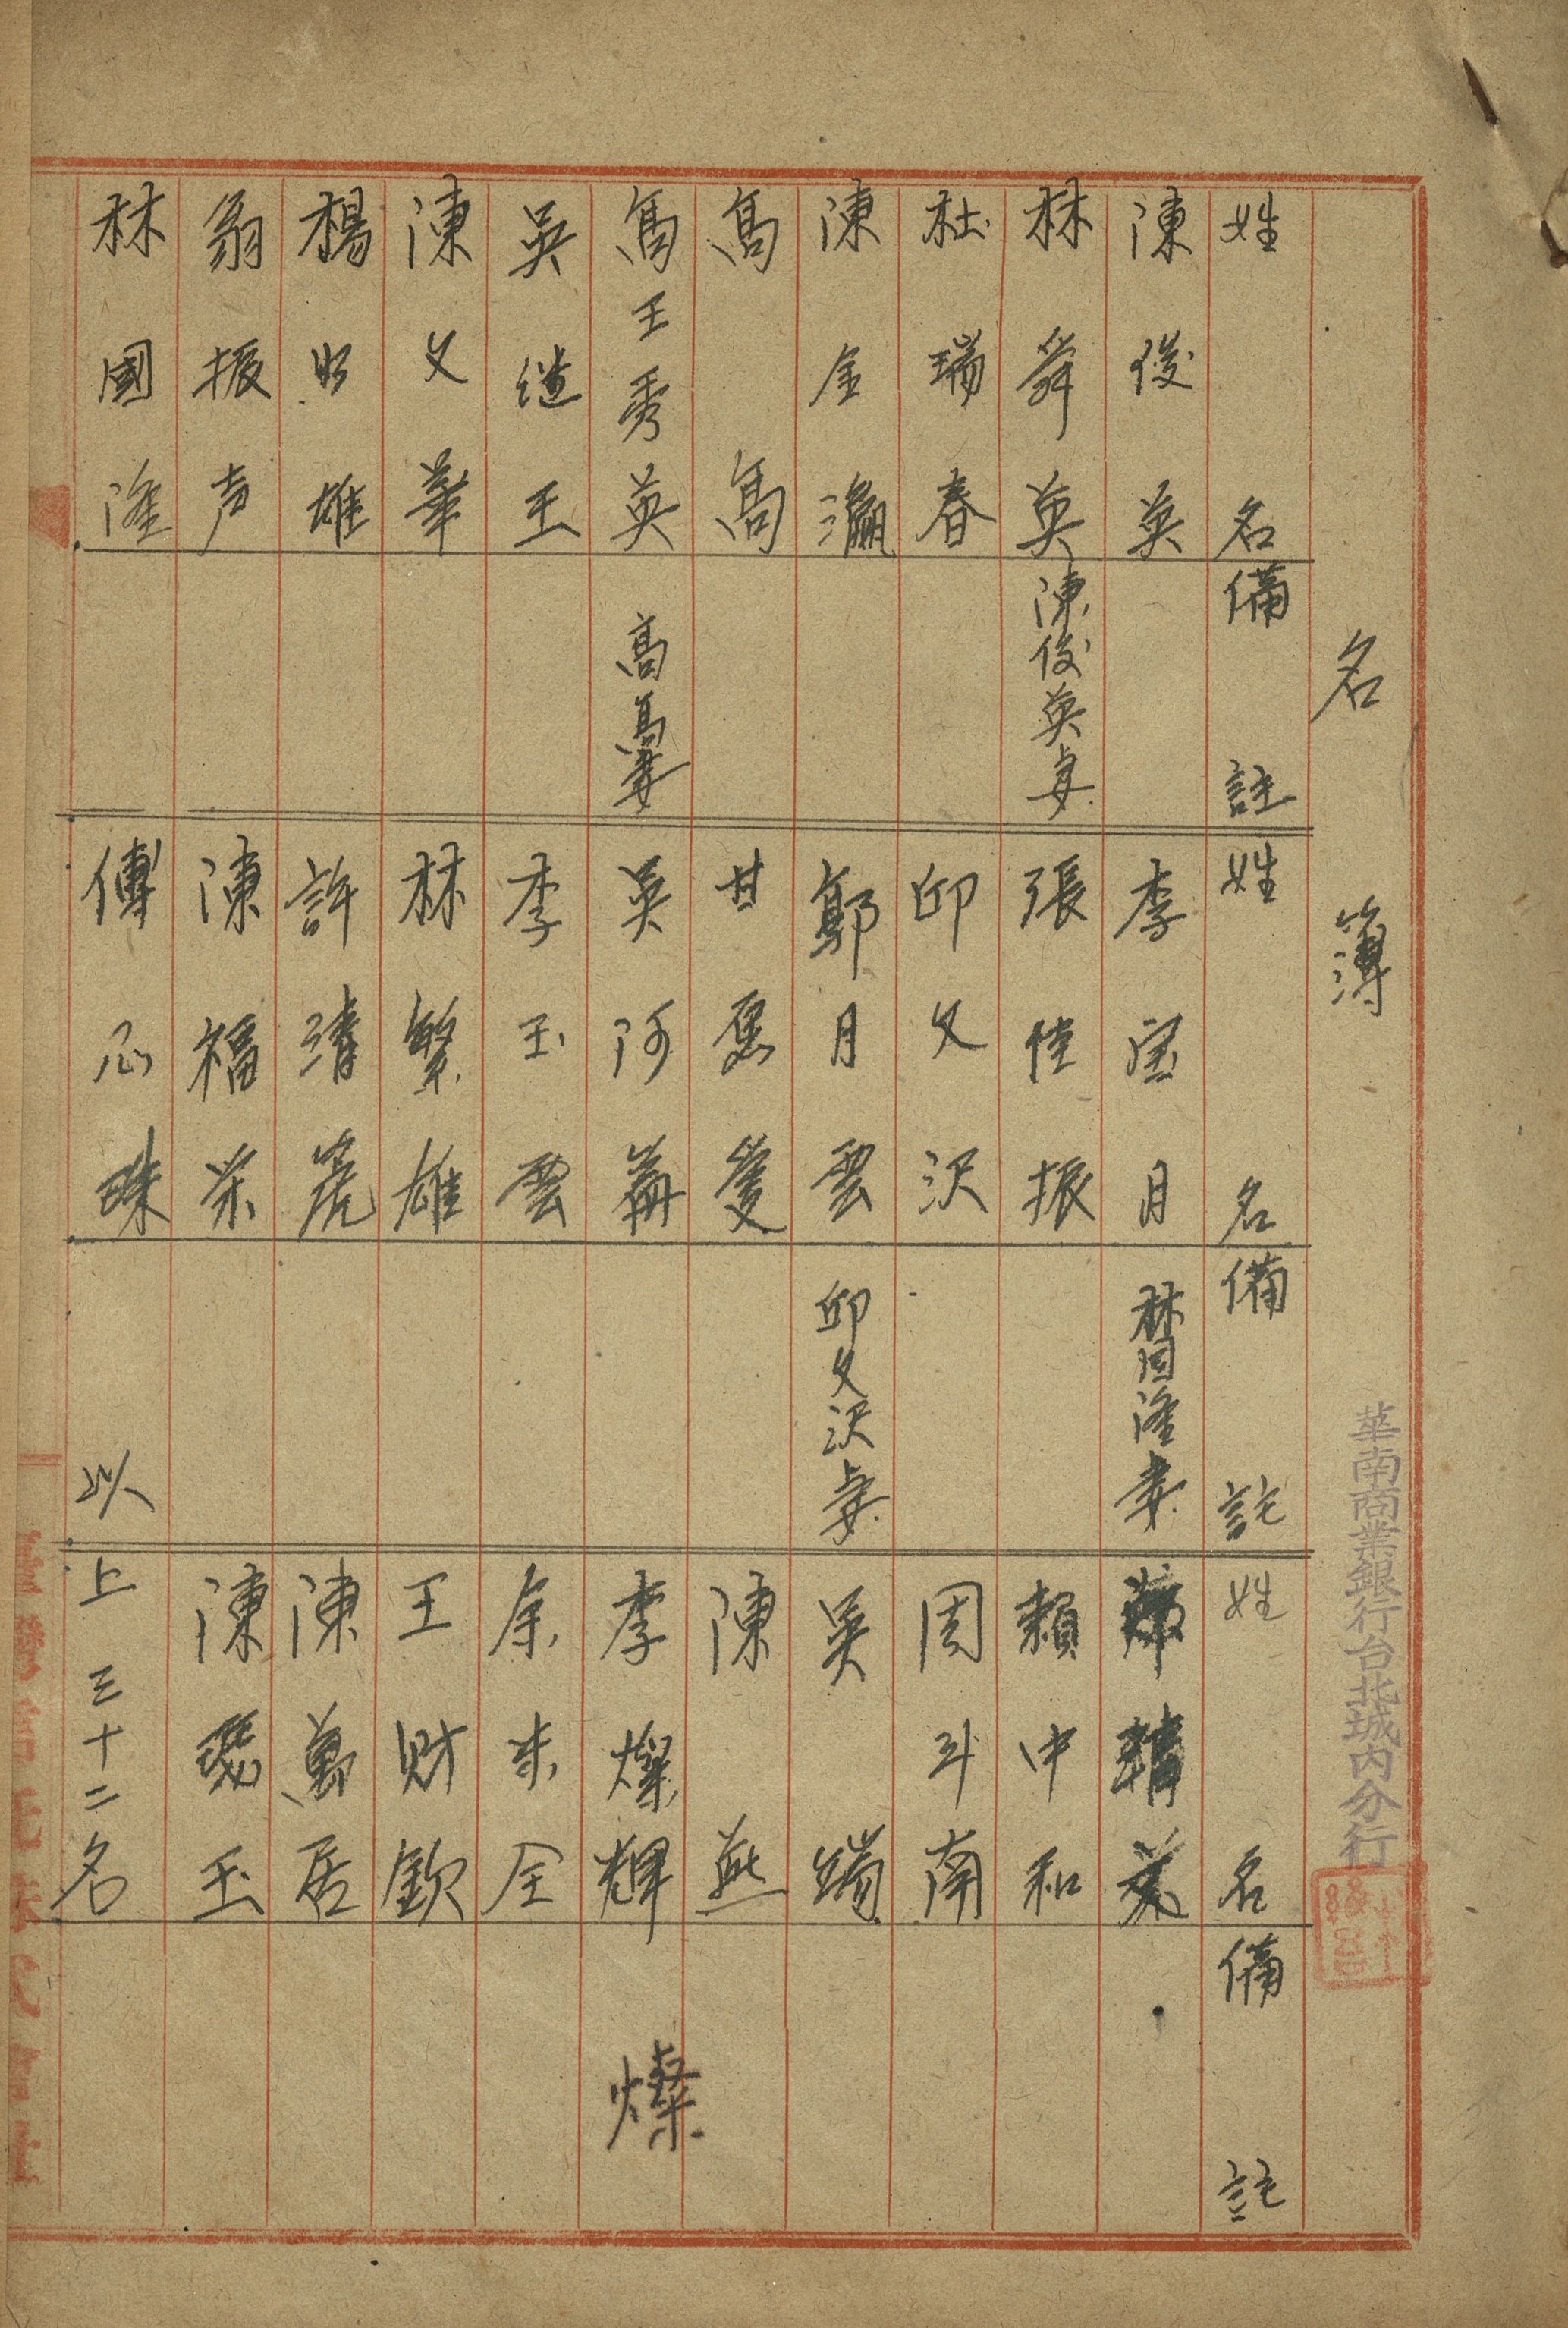 名簿
華南商業銀行台北城內分行
姓名 備註 姓名 備註 姓名 備註
陳俊英
林舜英 陳俊英妻
杜瑞春
陳金瀛
高高
高王秀英 高高妻
吳继玉
陳文華
楊照雄
翁振声
林國隆
李宝月 林国隆妻
張佳振
邱文沢
鄭月雲 邱文沢妻
甘恩
吳阿
李玉雲
林繁雄
許清
陳福荣
傅心珠
賴中和
周斗南
吳端
陳燕
李燦輝 燦
余来全
王財欽
陳萬居
陳瑟玉
以上三十二名